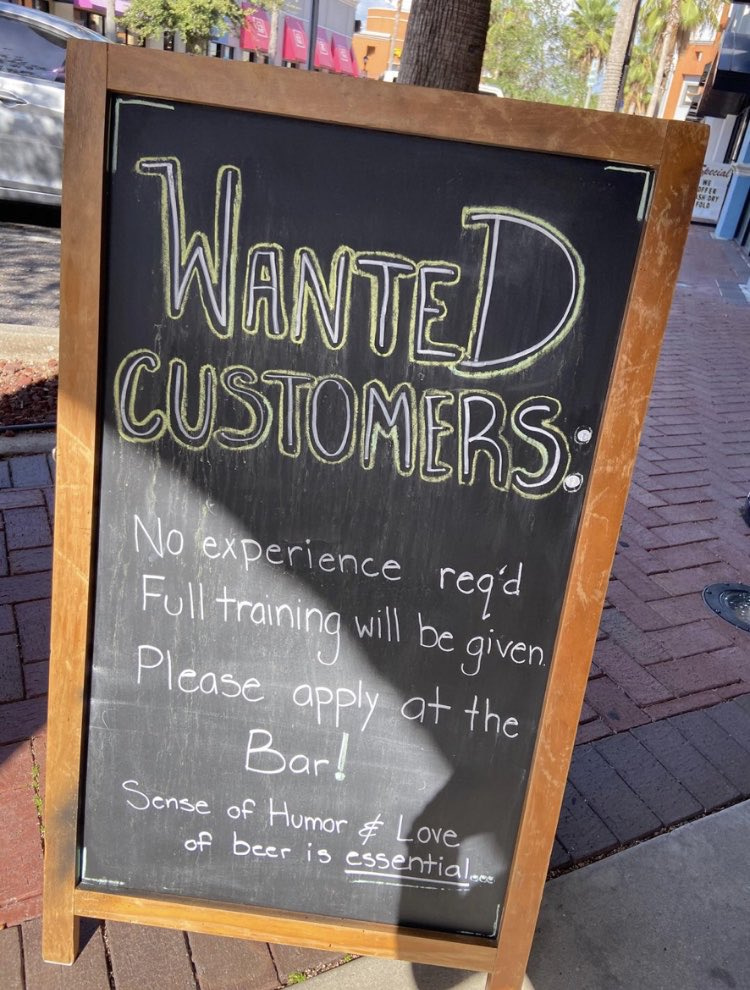 WANTED
CUSTOMERS:
No experience req'd
Full training will be given.
Please apply at the
Bar!
Sense of Humor & Love
of beer is essential...
Special
WE
OFFER
FOLD